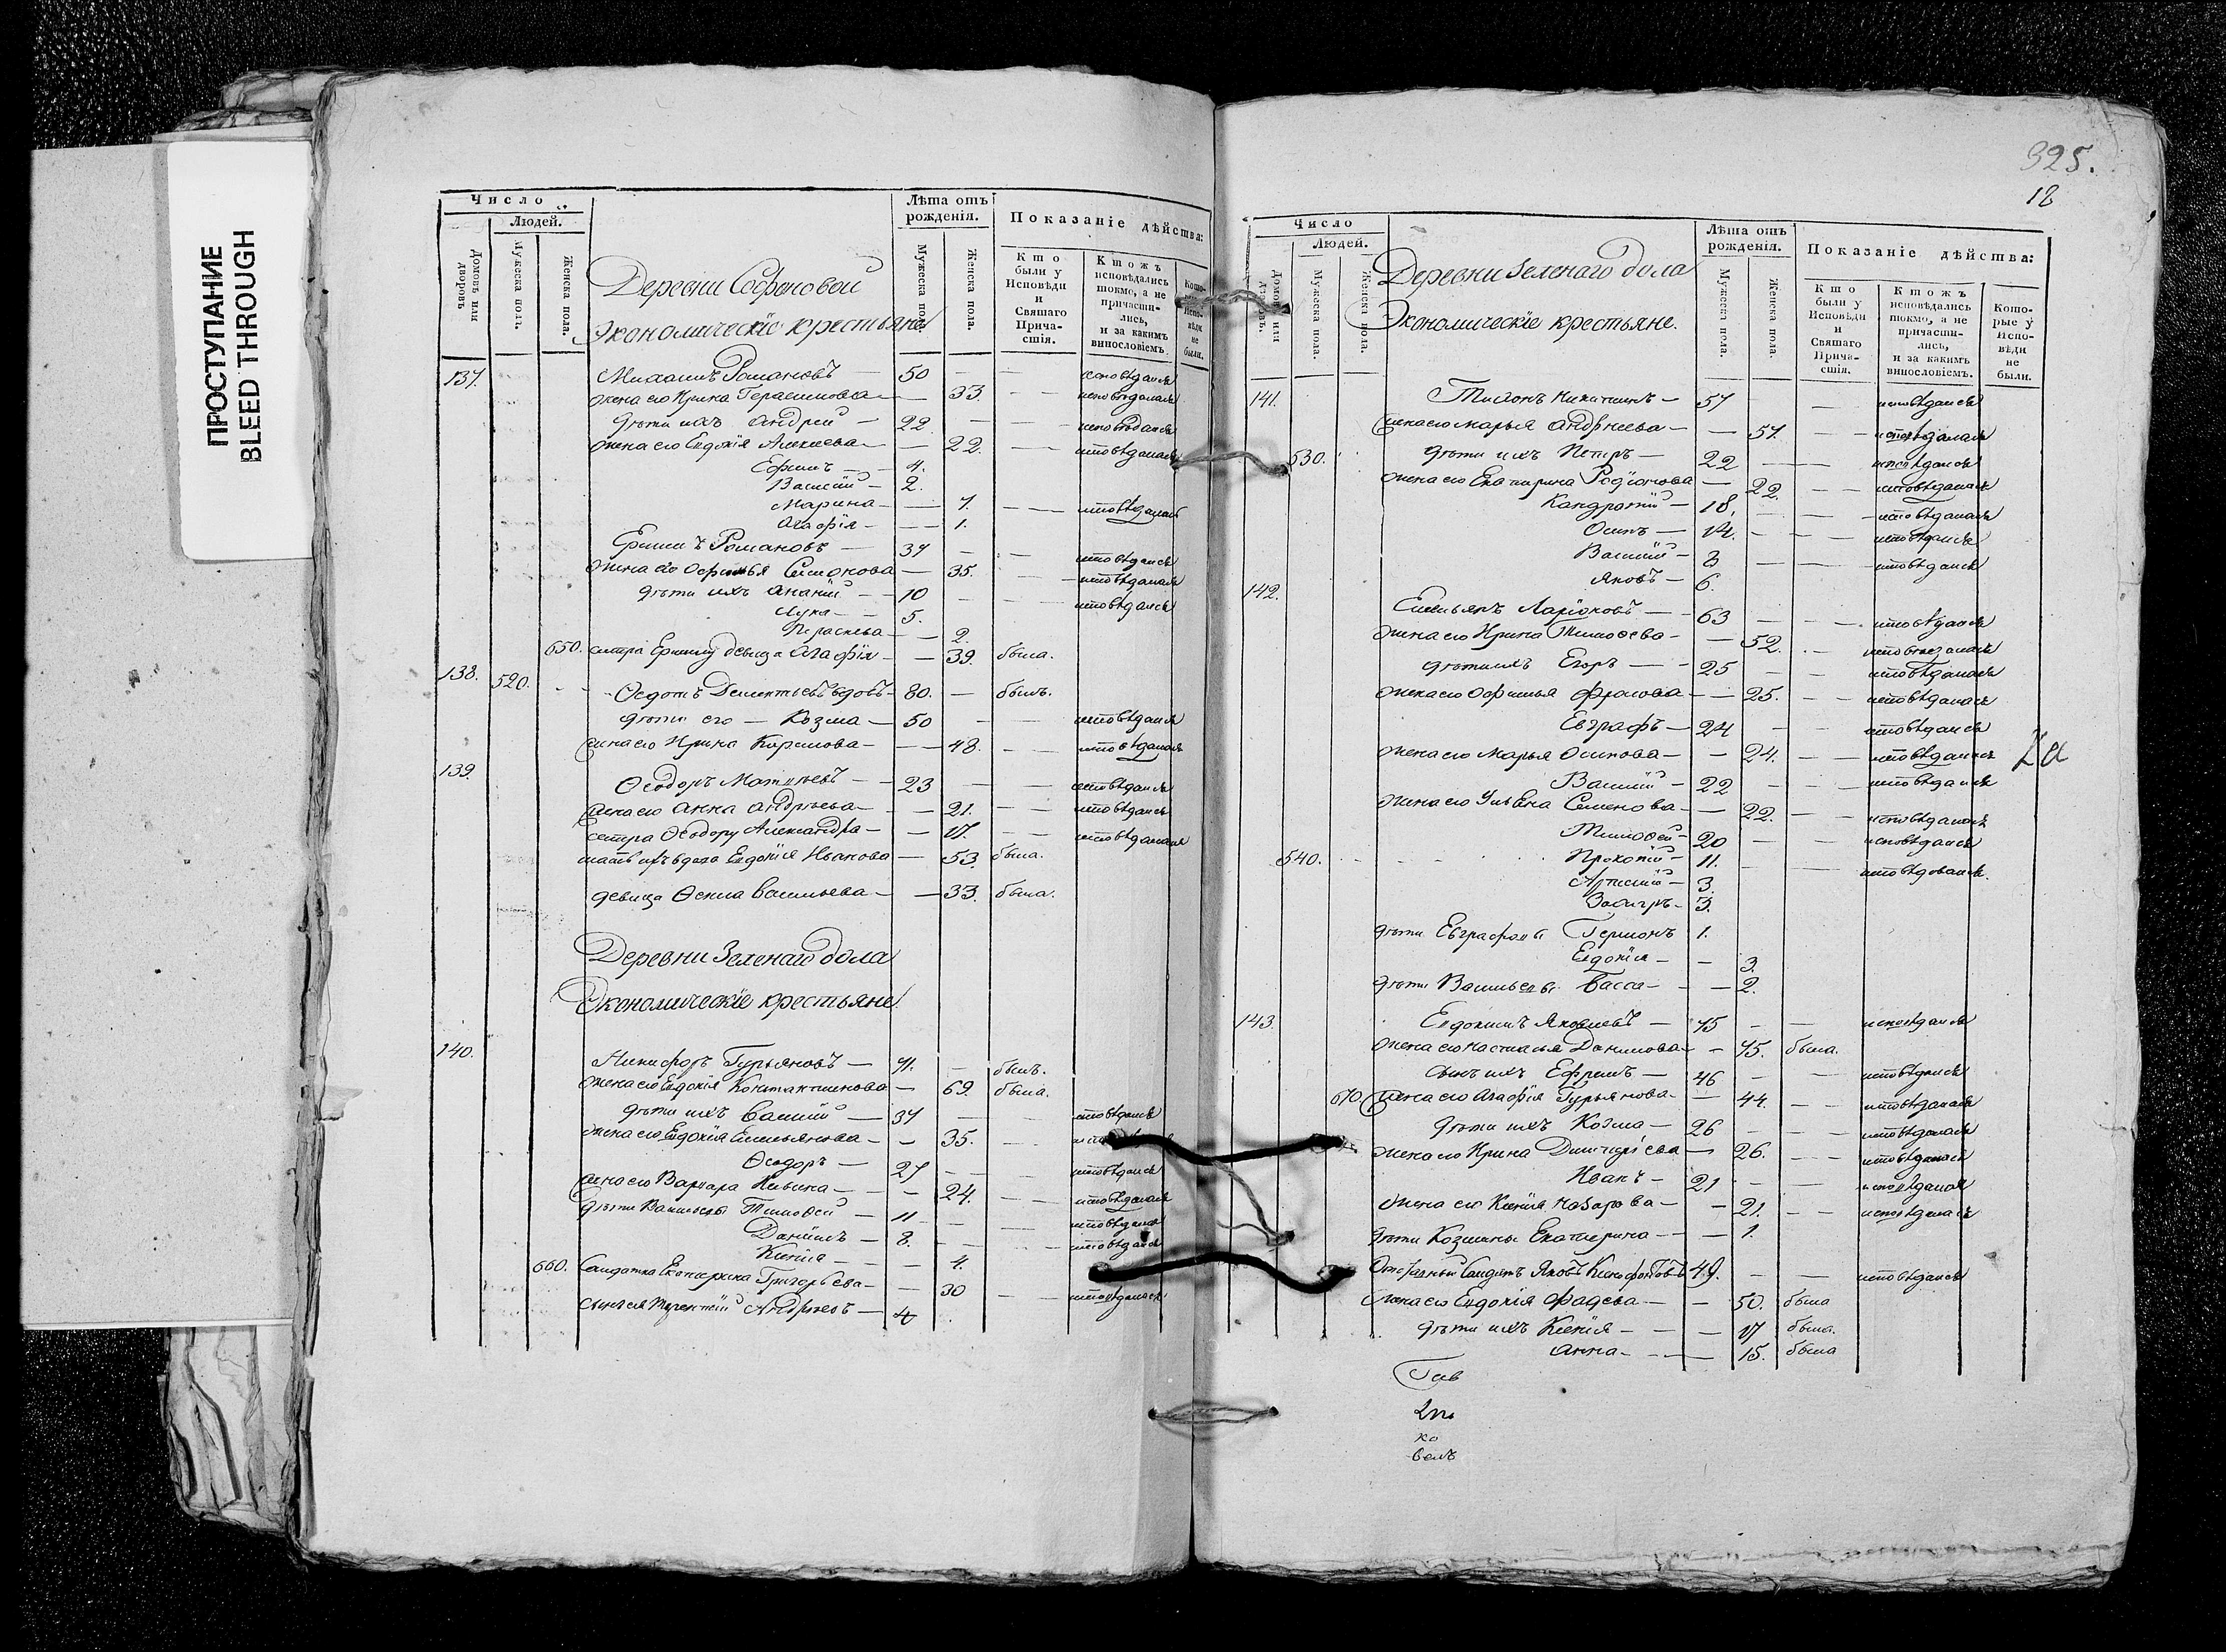 ПРОСТУПАНИЕ
BLEED THROUGH
Число
Людей.
Домовъ или дворовъ
Мужеска полъ.
Женска пола.
Деревни Софоновой
Экономическіе крестьяне
Лѣта отъ рожденія.
Мужеска пола.
Женска пола.
Показаніе дѣйства:
Кто были у Исповѣди и Святаго Причастія.
Ктожъ исповѣдались токмо, а не причастились, и за какимъ винословіемъ.
Которые у Исповѣди не были.
137. Михаилъ Романовъ — 50 — — исповѣдался
жена его Ирина Герасимова — 33. — исповѣдалась
дѣти ихъ Андрей — 22 — — исповѣдался
жена его Евдокія Алексѣева — 22. — исповѣдалась
Ефимъ — 4.
Василій — 2.
Марина — 7. — исповѣдалась
Агафія — 1.
Ермилъ Романовъ — 37 — — исповѣдался
жена его Офимья Семенова — 35. — исповѣдалась
дѣти ихъ Ананій — 10 — — исповѣдался
Лука — 5.
Параскева — 2.
650. сестра Ермилу девица Агафія — 39. была.
138. 520. Ѳедотъ Дементьевъ вдовъ — 80. — былъ.
дѣти его — Козма — 50 — — исповѣдался
жена его Ирина Карпова — 48. — исповѣдалась
139. Ѳеодоръ Матвѣевъ — 23 — — исповѣдался
жена его Анна Андрѣева — 21. — исповѣдалась
сестра Ѳеодору Александра — 17. — исповѣдалась
мать ихъ вдова Евдокія Иванова — 53. была.
девица Ѳекла Васильева — 33. была.
Деревни Зеленаго дола
Экономическіе крестьяне
140. Никифоръ Гурьяновъ — 71. — былъ.
жена его Евдокія Константинова — 69. была.
дѣти ихъ Василій — 37 — — исповѣдался
жена его Евдокія Емельянова — 35. —
Ѳеодоръ — 27 — — исповѣдался
жена его Варвара — 24. — исповѣдалась
дѣти Васильевы Тимоѳей — 11 — — исповѣдался
Даніилъ — 8. — — исповѣдался
Ксенія — 4.
660. Солдатка Екатерина Григорьева — 30 — исповѣдалась
сынъ ея Терентій Андреевъ — 4
325.
12
Число
Людей.
Домовъ или дворовъ.
Мужеска пола.
Женска пола.
Деревни Зеленаго дола
Экономическіе крестьяне.
Лѣта отъ рожденія.
Мужеска пола.
Женска пола.
Показаніе дѣйства:
Кто были у Исповѣди и Святаго Причастія.
Ктожъ исповѣдались токмо, а не причастились, и за какимъ винословіемъ.
Которые у Исповѣди не были.
141. Тихонъ Никитинъ — 57 — исповѣдался
жена его Марья Андрѣева — 57. — исповѣдалась
530. дѣти ихъ Петръ — 22 — исповѣдался
жена его Екатерина Родіонова — 22. — исповѣдалась
Кандратій — 18. — исповѣдался
Осипъ — 14. — исповѣдался
Василій — 8 — исповѣдался
Яковъ — 6.
142. Емельянъ Ларіоновъ — 63 — исповѣдался
жена его Ирина Тимоѳеева — 52. — исповѣдалась
дѣти ихъ Егоръ — 25 — исповѣдался
жена его Офимья Фролова — 25. — исповѣдалась
Евграфъ — 24 — исповѣдался
жена его Марья Осипова — 24. — исповѣдалась
Василій — 22 — исповѣдался
жена его Ульяна Семенова — 22. — исповѣдалась
Тимоѳей — 20 — исповѣдался
540. Прокопій — 11. — исповѣдался.
3.
3.
дѣти Евграфовы 1.
Евдокія — 3.
дѣти Васильевы Васса — 2.
143. Евдокимъ Яковлевъ — 75 — исповѣдался
жена его Настасья Данилова — 75. была.
сынъ ихъ Ефремъ — 46 — исповѣдался
670. жена его Агафія Гурьянова — 44. — исповѣдалась
дѣти ихъ Козма — 26 — исповѣдался
жена его Ирина Дмитріева — 26. — исповѣдалась
Иванъ — 21 — исповѣдался
жена его Ксенія Назарова — 21. — исповѣдалась
дѣти Козмины Екатерина — 1.
Отставный Солдатъ Яковъ Ксенофонтовъ 49. — исповѣдался
жена его Евдокія Фадеева — 50. была
дѣти ихъ Ксенія — 17 была.
Анна — 15. была